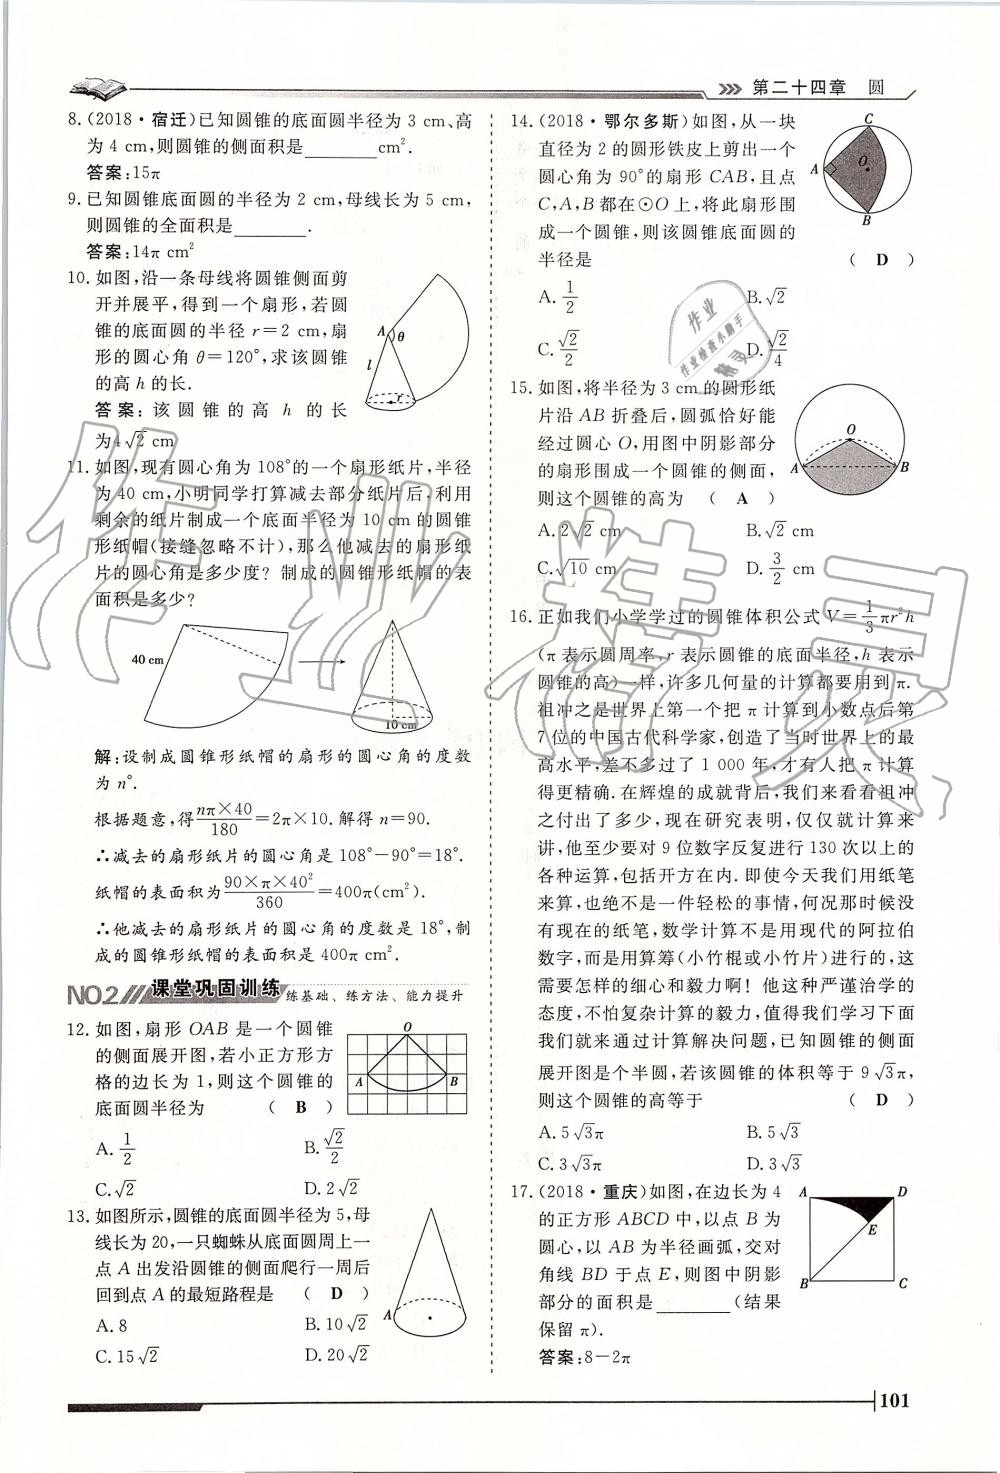 第二十四章 圆
8.(2018·宿迁)已知圆锥的底面圆半径为 3 cm、高
为 4 cm,则圆锥的侧面积是________cm².
答案:15π
9.已知圆锥底面圆的半径为 2 cm,母线长为 5 cm,
则圆锥的全面积是________.
答案:14π cm²
10.如图,沿一条母线将圆锥侧面剪
开并展平,得到一个扇形,若圆
锥的底面圆的半径 r=2 cm,扇
形的圆心角 θ=120°,求该圆锥
的高 h 的长.
答案:该圆锥的高 h 的长
为4√2 cm
A
θ
l
r
11.如图,现有圆心角为 108°的一个扇形纸片,半径
为 40 cm,小明同学打算减去部分纸片后,利用
剩余的纸片制成一个底面半径为 10 cm 的圆锥
形纸帽(接缝忽略不计),那么他减去的扇形纸
片的圆心角是多少度? 制成的圆锥形纸帽的表
面积是多少?
40 cm
10 cm
解:设制成圆锥形纸帽的扇形的圆心角的度数
为 n°.
根据题意,得nπ×40/180=2π×10.解得 n=90.
∴减去的扇形纸片的圆心角是 108°−90°=18°.
纸帽的表面积为90×π×40²/360=400π(cm²).
∴他减去的扇形纸片的圆心角的度数是 18°,制
成的圆锥形纸帽的表面积是 400π cm².
NO.2 课堂巩固训练 练基础、练方法、能力提升
12.如图,扇形 OAB 是一个圆锥
的侧面展开图,若小正方形方
格的边长为 1,则这个圆锥的
底面圆半径为 ( B )
O
A
B
A.1/2 B.√2/2
C.√2 D.2√2
13.如图所示,圆锥的底面圆半径为 5,母
线长为 20,一只蜘蛛从底面圆周上一
点 A 出发沿圆锥的侧面爬行一周后
回到点 A 的最短路程是 ( D )
A.8 B.10√2
C.15√2 D.20√2
A
14.(2018·鄂尔多斯)如图,从一块
直径为 2 的圆形铁皮上剪出一个
圆心角为 90°的扇形 CAB,且点
C,A,B 都在⊙O 上,将此扇形围
成一个圆锥,则该圆锥底面圆的
半径是 ( D )
C
O
A
B
A.1/2 B.√2
C.√2/2 D.√2/4
15.如图,将半径为 3 cm 的圆形纸
片沿 AB 折叠后,圆弧恰好能
经过圆心 O,用图中阴影部分
的扇形围成一个圆锥的侧面,
则这个圆锥的高为 ( A )
O
A
B
A.2√2 cm B.√2 cm
C.√10 cm D.3/2 cm
16.正如我们小学学过的圆锥体积公式 V=1/3πr²h
(π 表示圆周率,r 表示圆锥的底面半径,h 表示
圆锥的高)一样,许多几何量的计算都要用到 π.
祖冲之是世界上第一个把 π 计算到小数点后第
7 位的中国古代科学家,创造了当时世界上的最
高水平,差不多过了 1 000 年,才有人把 π 计算
得更精确.在辉煌的成就背后,我们来看看祖冲
之付出了多少,现在研究表明,仅仅就计算来
讲,他至少要对 9 位数字反复进行 130 次以上的
各种运算,包括开方在内.即使今天我们用纸笔
来算,也绝不是一件轻松的事情,何况那时候没
有现在的纸笔,数学计算不是用现代的阿拉伯
数字,而是用算筹(小竹棍或小竹片)进行的,这
需要怎样的细心和毅力啊! 他这种严谨治学的
态度,不怕复杂计算的毅力,值得我们学习下面
我们就来通过计算解决问题,已知圆锥的侧面
展开图是个半圆,若该圆锥的体积等于 9√3π,
则这个圆锥的高等于 ( D )
A.5√3π B.5√3
C.3√3π D.3√3
17.(2018·重庆)如图,在边长为 4
的正方形 ABCD 中,以点 B 为
圆心,以 AB 为半径画弧,交对
角线 BD 于点 E,则图中阴影
部分的面积是________(结果
保留 π).
答案:8−2π
A
D
E
B
C
作业
作业检查小助手
精灵
作业精灵
101